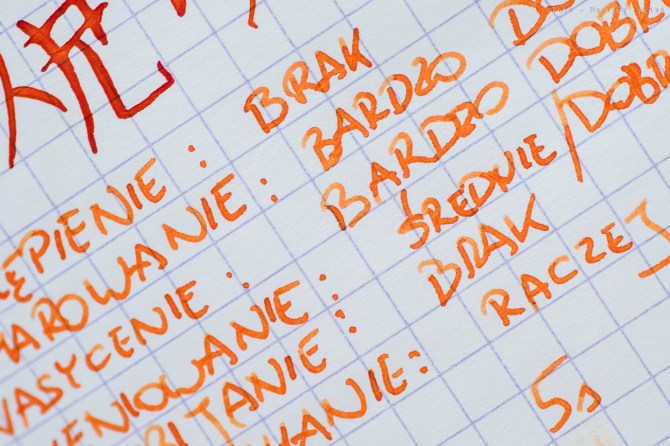 ĘPIENIE : BRAK
AROWANIE : BARDZO DO
NASYCENIE : BARDZO DOBR
ENIOWANIE : ŚREDNIE/DOBR
BIJANIE : BRAK
WANIE: RACZEJ
5s